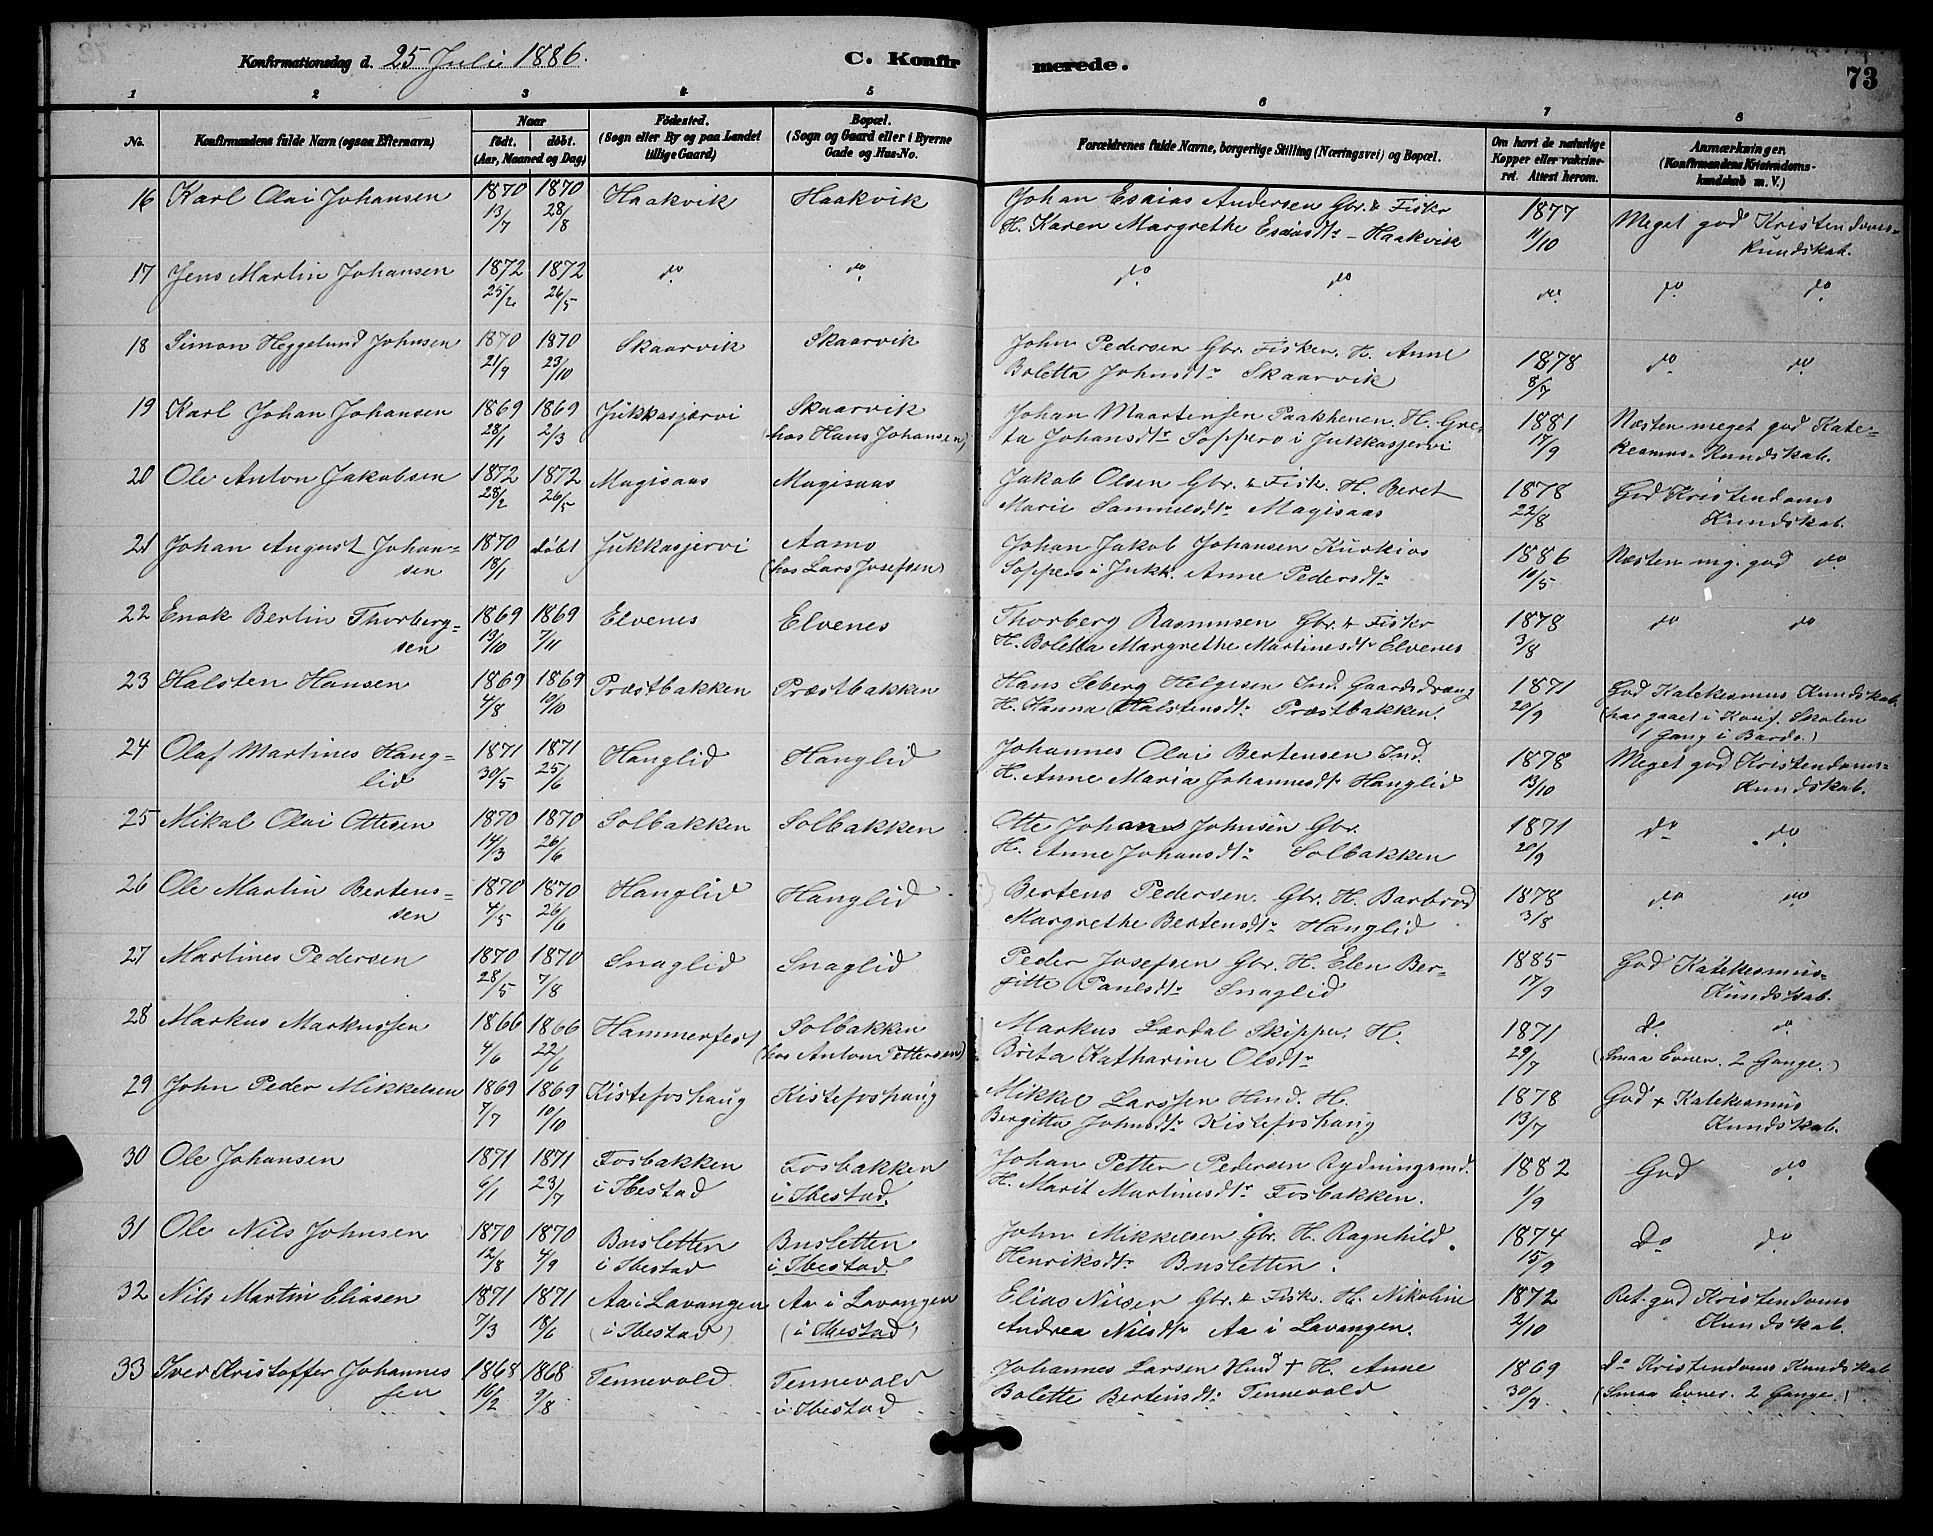 Konfirmationsdag d. 25 Juli 1886. C. Konfirmerede. 73
1 2 3 4 5 6 7 8
No. Konfirmandens fulde Navn (ogsaa Efternavn) Naar født. døbt. (Aar, Maaned og Dag) Fødested. (Sogn eller By og paa Landet tillige Gaard) Bopæl. (Sogn og Gaard eller i Byerne Gade og Hus-No. Forældrenes fulde Navne, borgerlige Stilling (Næringsvei) og Bopæl. Om havt de naturlige Kopper eller vakcineret. Attest herom. Anmærkninger, (Konfirmandens Kristendomskundskab m. V.)
16 Karl Olai Johansen 1870 13/7 1870 28/8 Haakvik Haakvik Johan Esaias Andersen Gbr. & Fisker H. Karen Margrethe Esaisdtr - Haakvik 1877 11/10 Meget god Kristendoms-Kundskab.
17 Jens Martin Johansen 1872 25/2 1872 26/5 do do do do do do do
18 Simon Heggelund Johnsen 1870 21/9 1870 23/10 Skaarvik Skaarvik John Pedersen Gbr. Fisker. H. Anne Boletta Johnsdtr Skaarvik 1878 8/7 do do
19 Karl Johan Johansen 1869 28/1 1869 2/3 Jukkasjærvi Skaarvik (hos Hans Johansen) Johan Maartensen Paakhenen. H. Greta Johansdtr Soppero i Jukkasjervi 1881 17/9 Næsten meget god Katekesmus-Kundskab.
20 Ole Anton Jakobsen 1872 28/2 1872 26/5 Magisaas Magisaas Jakob Olsen Gbr. & Fisk. H. Beret Marie Samuelsdtr Magisaas 1878 22/8 God Kristendoms Kundskab.
21 Johan August Johansen 1870 18/1 døbt Jukkasjervi Aamo (hos Lars Josefsen) Johan Jakob Johansen Kuskios Soppero i Jukk. Anne Pedersdtr 1886 10/5 Næsten mg. god do
22 Enok Bertin Thorbergsen 1869 13/10 1869 7/11 Elvenes Elvenes Thorberg Rasmusen Gbr. & Fisker H. Boletta Margrethe Martinesdtr Elvenes 1878 3/8 do do
23 Halsten Hansen 1869 4/8 1869 10/10 Præstbakken Præstbakken Hans Seberg Helgesen Ind. Gaardsdræng H. Hanna Halstensdtr Præstbakken. 1871 20/9 God Katekesmus Kundskab. (har gaaet i Konf. Skolen 1 Gang i Bardo.)
24 Olaf Martines Hanglid 1871 30/5 1871 25/6 Hanglid Hanglid Johannes Olai Bertensen Ind. H. Anne Maria Johannesdtr Hanglid 1878 13/10 Meget god Kristendoms-Kundskab.
25 Mikal Olai Ottesen 1870 14/3 1870 26/6 Solbakken Solbakken Otte Johanes Johnsen Gbr. H. Anne Johansdtr Solbakken 1871 20/9 do do
26 Ole Martin Bertenssen 1870 4/5 1870 26/6 Hanglid Hanglid Bertens Pedersen. Gbr. H. Barbrod Margrethe Bertensdtr Hanglid 1878 3/8 do do
27 Martines Pedersen 1870 28/5 1870 7/8 Snaglid Snaglid Peder Josefsen Gbr. H. Elen Bergitte Paulsdtr Snaglid 1885 17/9 God Katekesmus-Kundskab.
28 Markus Markussen 1866 4/6 1866 22/6 Hammerfest Solbakken (hos Anton Pettersen) Markus Lærdal Skipper. H. Brita Katharine Olsdtr 1871 29/7 do do (Smaa Evner. 2 Gange.)
29 John Peder Mikkelsen 1869 7/7 1869 10/10 Kistefoshaug Kistefoshaug Mikkel Larssen Hmd. H. Bergitta Johnsdtr Kistefoshaug 1878 13/7 God + Katekesmus Kundskab.
30 Ole Johansen 1871 6/1 1871 23/7 Fosbakken i Ibestad Fosbakken i Ibestad. Johan Petter Pedersen Rydningsmd. H. Marit Martinesdtr Fosbakken. 1882 1/9 God do
31 Ole Nils Johnsen 1870 12/8 1870 4/9 Busletten i Ibestad Busletten i Ibestad John Mikkelsen Gbr. H. Ragnhild Henriksdtr Busletten. 1874 15/9 do do
32 Nils Martin Eliasen 1871 7/3 1871 18/6 Aa i Lavangen (i Ibestad) Aa i Lavangen (i Ibestad) Elias Nilsen Gbr. & Fisk. H. Nikoline Andrea Nilsdtr Aa i Lavangen. 1872 2/10 Ret god Kristendoms Kundskab.
33 Iver Kristoffer Johannessen 1868 16/2 1868 9/8 Tennevold Tennevold i Ibestad Johannes Larsen Hmd + H. Anne Bolette Bertensdtr Tennevold 1869 30/9 do Kristendoms Kundskab (Smaa Evner. 2 Gange.)